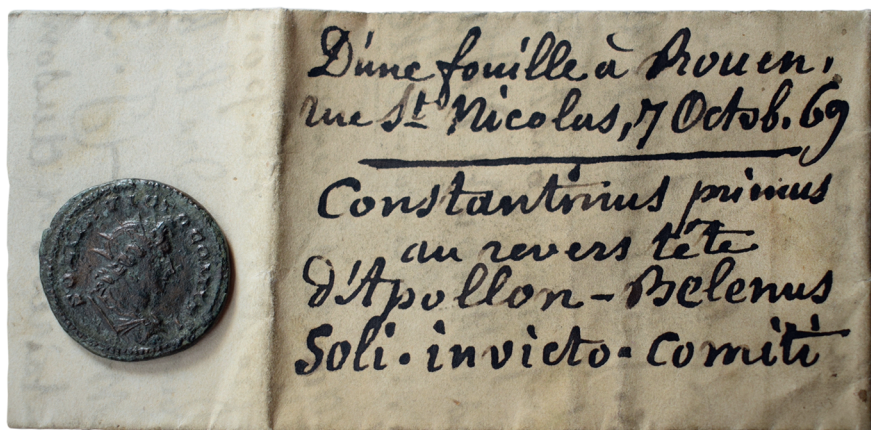 D'une fouille à Rouen,
rue St Nicolas, 7 Octob. 69
Constantinus primus
au revers tête
d'Apollon - Belenus
Soli. invicto. comiti